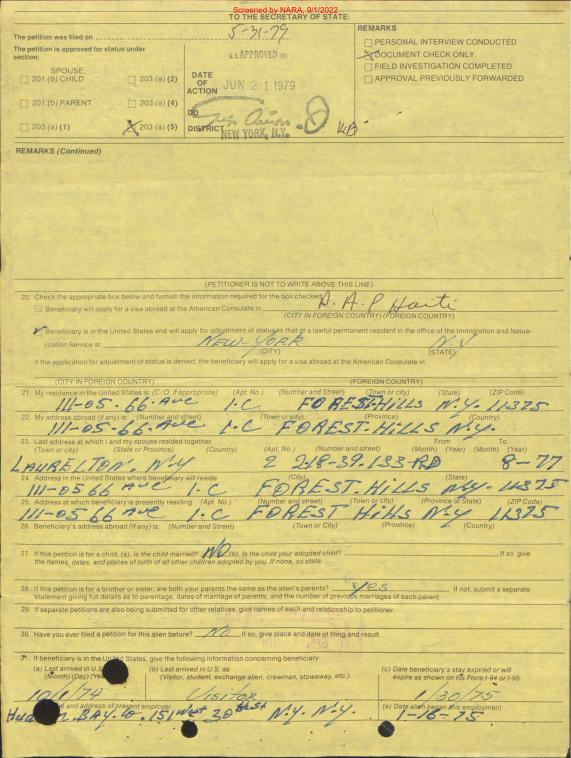 Screened by NARA, 9/1/2022
TO THE SECRETARY OF STATE:
The petition was filed on 5-31-79
The petition is approved for status under section:
SPOUSE,
201 (b) CHILD 203 (a) (2)
201 (b) PARENT 203 (a) (4)
203 (a) (1) X 203 (a) (5)
APPROVED
DATE OF ACTION JUN 21 1979
DD
DISTRICT NEW YORK, N.Y.
REMARKS
PERSONAL INTERVIEW CONDUCTED
X DOCUMENT CHECK ONLY
FIELD INVESTIGATION COMPLETED
APPROVAL PREVIOUSLY FORWARDED
REMARKS (Continued)
(PETITIONER IS NOT TO WRITE ABOVE THIS LINE)
20. Check the appropriate box below and furnish the information required for the box checked:
Beneficiary will apply for a visa abroad at the American Consulate in P.A.P Haiti
(CITY IN FOREIGN COUNTRY) (FOREIGN COUNTRY)
Beneficiary is in the United States and will apply for adjustment of status to that of a lawful permanent resident in the office of the Immigration and Natua-
lization Service at NEW-YORK N.Y
(CITY) (STATE)
If the application for adjustment of status is denied, the beneficiary will apply for a visa abroad at the American Consulate in
(CITY IN FOREIGN COUNTRY) (FOREIGN COUNTRY)
21. My residence in the United States is: (C/O, if appropriate) (Apt. No.) (Number and Street) (Town or city) (State) (ZIP Code)
111-05.66.AVE 1.C FOREST-HILLS N.Y. 11375
22. My address abroad (if any) is: (Number and street) (Town or city) (Province) (Country)
111-05.66-AVE 1.C FOREST-HILLS N.Y.
23. Last address at which I and my spouse resided together From To
(Town or city) (State or Province) (Country) (Apt. No.) (Number and street) (Month) (Year) (Month) (Year)
LAURELTON, N.Y 2 218-39-133-RD 8-77
24. Address in the United States where beneficiary will reside (State)
111-05 66 AVE 1-C FOREST-HILLS N.Y. 11375
25. Address at which beneficiary is presently residing (Apt. No.) (Number and street) (Town or city) (Province or State) (ZIP Code)
111-05 66 AVE 1-C FOREST Hills N.Y 11375
26. Beneficiary's address abroad (if any) is: (Number and Street) (Town or City) (Province) (Country)
27. If this petition is for a child, (a). Is the child married? NO (b). Is the child your adopted child? If so, give
the names, dates, and places of birth of all other children adopted by you. If none, so state.
28. If this petition is for a brother or sister, are both your parents the same as the alien's parents? Yes If not, submit a separate
statement giving full details as to parentage, dates of marriage of parents, and the number of previous marriages of each parent.
29. If separate petitions are also being submitted for other relatives, give names of each and relationship to petitioner.
30. Have you ever filed a petition for this alien before? No If so, give place and date of filing and result.
31. If beneficiary is in the United States, give the following information concerning beneficiary:
(a) Last arrived in U.S. (b) Last arrived in U.S. as (c) Date beneficiary's stay expired or will
(Month) (Day) (Year) (Visitor, student, exchange alien, crewman, stowaway, etc.) expire as shown on his Form I-94 or I-95
10/1/74 Visitor 1/30/75
and address of present employer (e) Date alien began this employment
BAY.Co. 151 West 30 N.Y. N.Y. 1-16-75